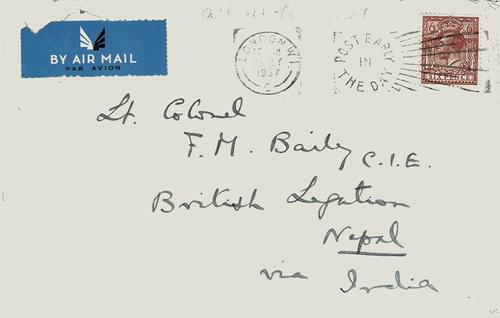 BY AIR MAIL
PAR AVION
LONDON. W1
1937
C
POST EARLY
IN
THE DAY
6 6
SIX PENCE
Lt. Colonel
F. M. Bailey C.I.E.
British Legation
Nepal
via India